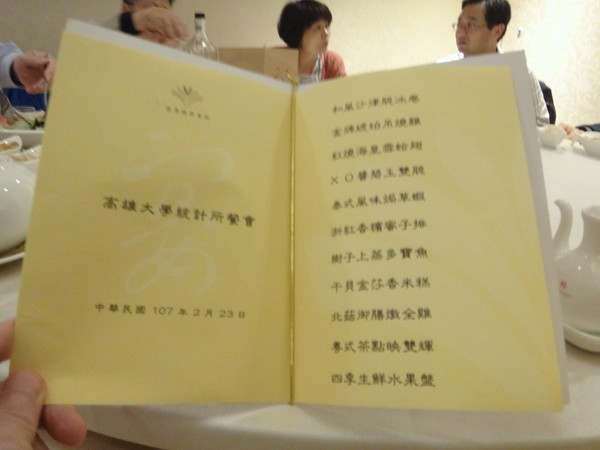 高雄大學統計所餐會
中華民國 107 年 2 月 23 日
和風沙律脆冰卷
金牌琥珀吊燒雞
紅燒海皇蓉粉翅
X O 醬簡玉雙脆
泰式風味焗草蝦
浙紅香檳寧子排
樹子上蒸多寶魚
干貝金莎香米糕
北菇御膳燉全雞
粵式茶點映雙輝
四季生鮮水果盤